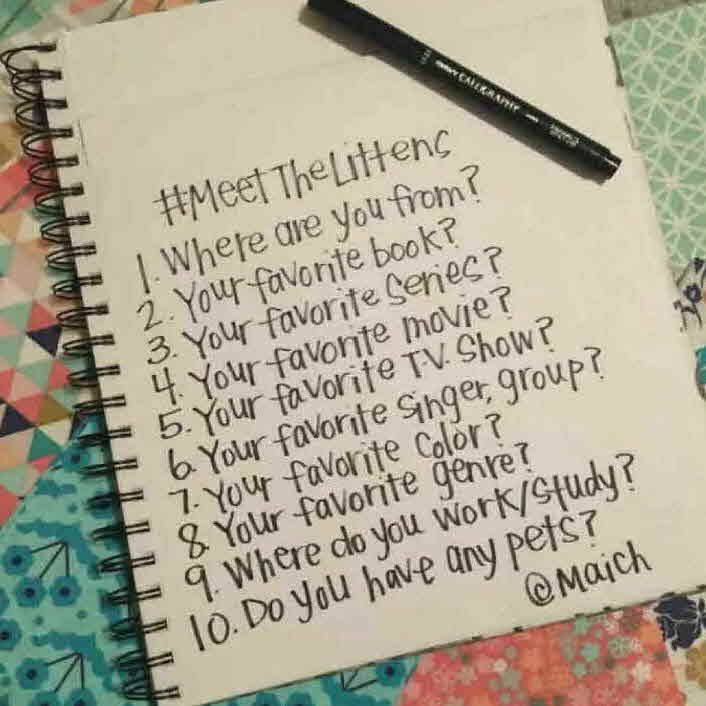 CALLIGRAPHY
#MeetTheLittens
1. Where are you from?
2. Your favorite book?
3. Your favorite series?
4. Your favorite movie?
5. Your favorite TV Show?
6. Your favorite singer, group?
7. Your favorite color?
8. Your favorite genre?
9. Where do you work/study?
10. Do you have any pets?
@Maich